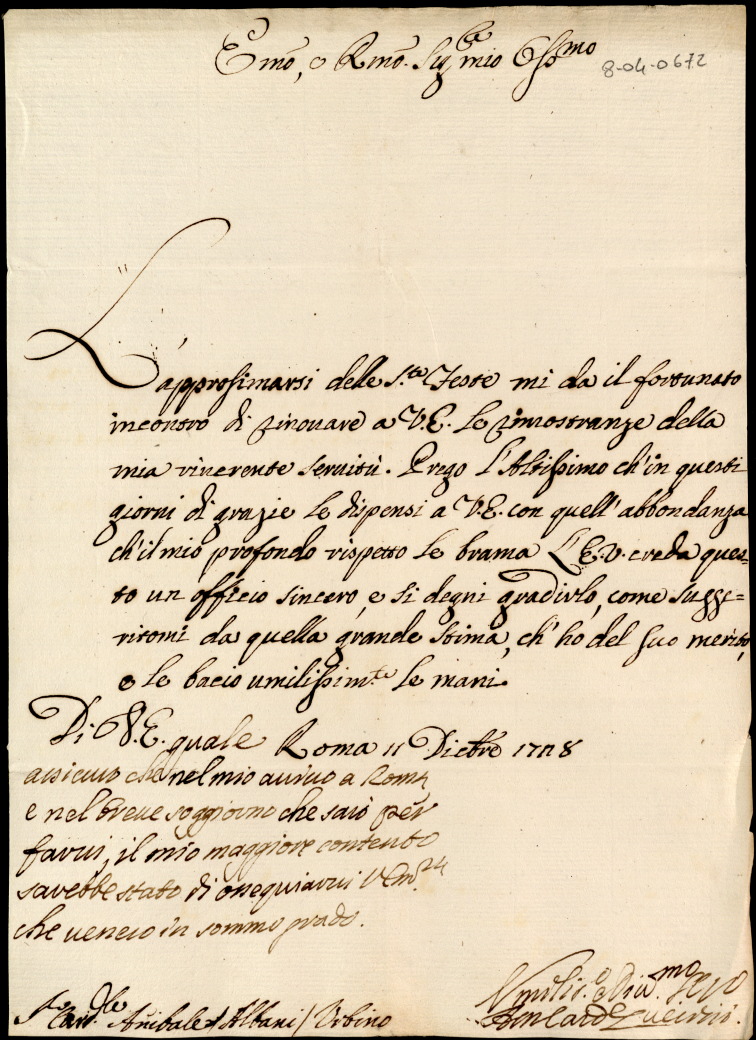 Emo, e Rmo. Sigre mio Ossmo
8-04-0672
L'approssimarsi delle S.te Feste mi da il fortunato
incontro di rinouare a V.E. le rimostranze della
mia riuerente seruitù. Prego l'Altissimo ch'in questi
giorni di grazie le dispensi a V.E. con quell'abbondanza
ch'il mio profondo rispetto le brama. L'E.V. creda ques-
to un officio sincero, e si degni gradirlo, come sugge=
ritomi da quella grande stima, ch'ho del suo merito,
e le bacio umilissim.te le mani.
Di V.E. quale Roma 11 Dicbre 1728
assicuro che nel mio arriuo a Roma
e nel breue soggiorno che sarò per
farui, il mio maggiore contento
sarebbe stato di ossequiarui V. Em.
che venero in sommo grado.
Sre Card.le Anibale Albani / Urbino
Umilis. e Diu.mo Seruo